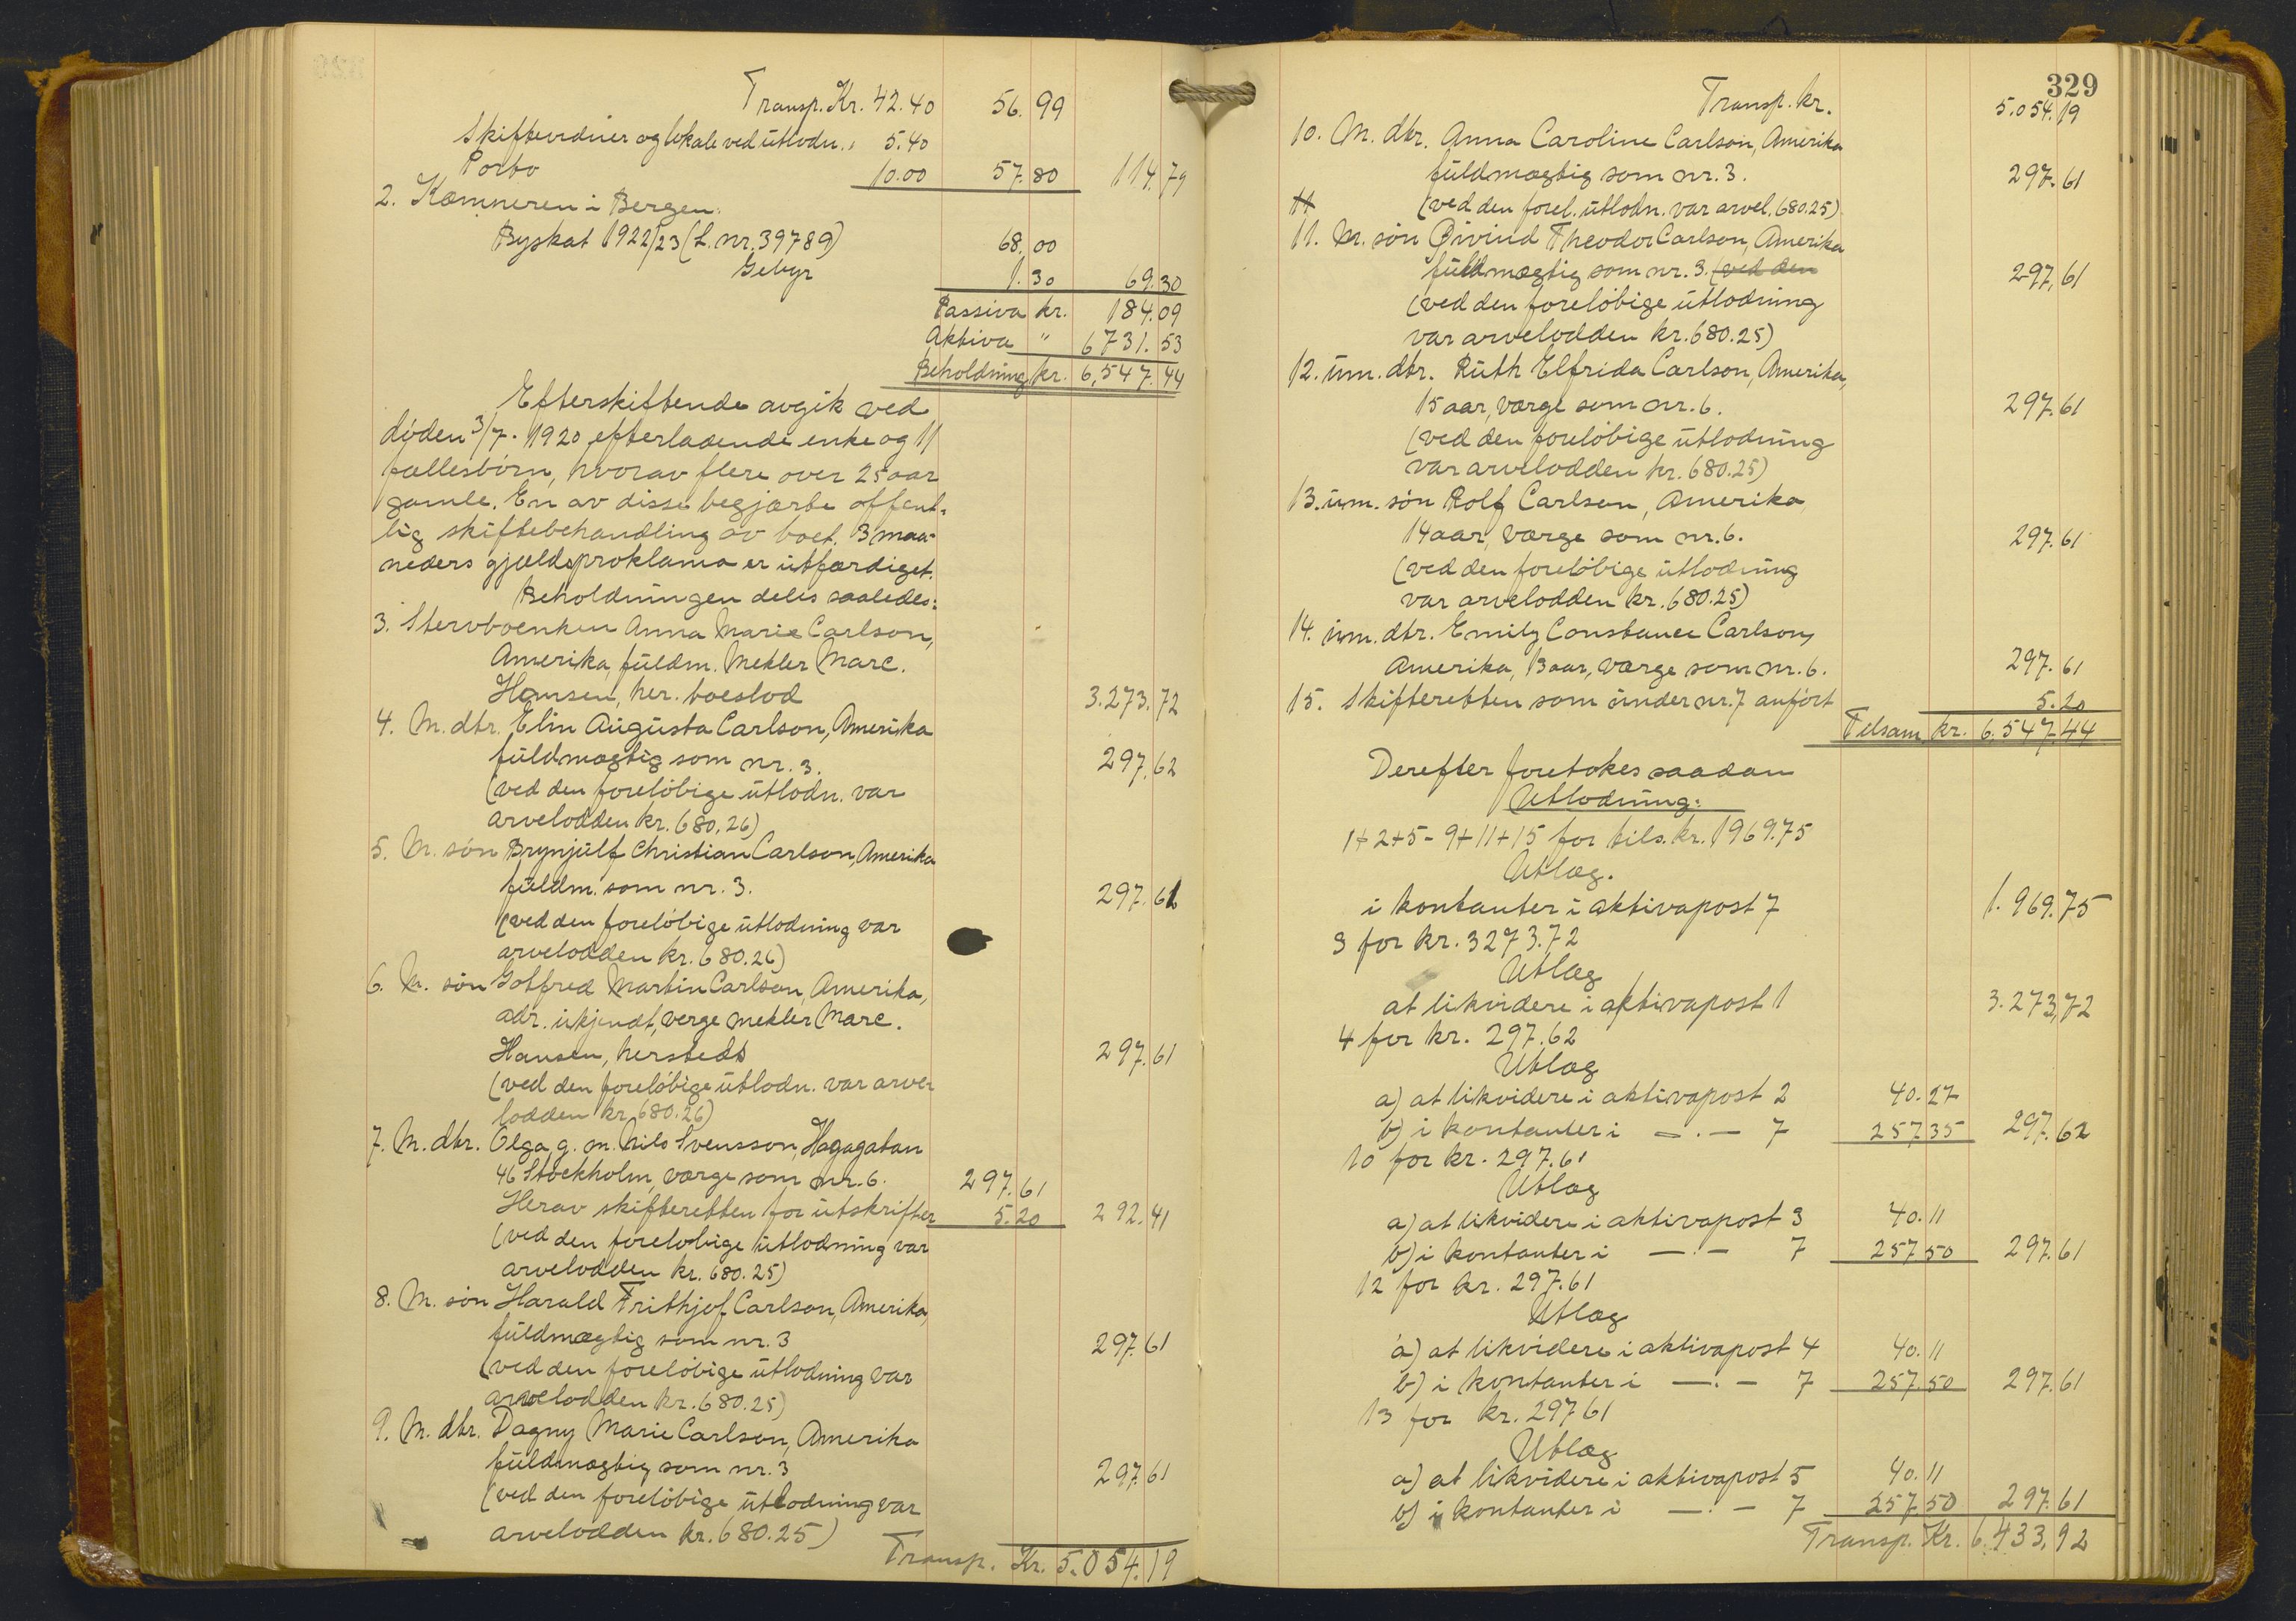 Transp. Kr. 42.40 56.99
Skiftevidner og lokale ved utlodn. " 5.40
Porto 10.00 57.80 114.79
2. Kæmneren i Bergen:
Byskat 1922/23 (L. nr. 39789) 68.00
Gebyr 1.30 69.30
Passiva kr. 184.09
Aktiva " 6731.53
Beholdning kr. 6,547.44
Efterskiftende avgik ved
døden 3/7. 1920 efterladende enke og 11
fællesbörn, hvorav flere over 25 aar
gamle. En av disse begjærte offent-
lig skiftebehandling av boet. 3 maa-
neders gjældsproklama er utfærdiget.
Beholdningen deles saaledes:
3. Stervboenken Anna Marie Carlson,
Amerika, fuldm. Mekler Marc.
Hansen, her. boeslod 3.273.72
4. M. dtr. Elin Augusta Carlson, Amerika
fuldmægtig som nr. 3. 297.62
(ved den forelöbige utlodn. var
arvelodden kr. 680.26)
5. M. sön Brynjulf Christian Carlson, Amerika
fuldm. som nr. 3. 297.61
(ved den forelöbige utlodning var
arvelodden kr. 680.26)
6. M. sön Gotfred Martin Carlson, Amerika,
adr. ukjendt, verge mekler Marc.
Hansen, hersteds 297.61
(ved den forelöbige utlodn. var arve-
lodden kr. 680.26)
7. M. dtr. Olga g. m. Nils Svensson, Hagagatan
46 Stockholm, værge som nr. 6. 297.61
Herav skifteretten for utskrifter 5.20 292.41
(ved den forelobige utlodning var
arvelodden kr. 680.25)
8. M. sön Harald Frithjof Carlson, Amerika,
fuldmægtig som nr. 3 297.61
(ved den forelöbige utlodning var
arvelodden kr. 680.25)
9. M. dtr. Dagny Marie Carlson, Amerika
fuldmægtig som nr. 3 297.61
(ved den forelöbige utlodning var
arvelodden kr. 680.25)
Transp. Kr. 5.054.19
329
Transp. kr. 5.054.19
10. M. dtr. Anna Caroline Carlson, Amerika
fuldmægtig som nr. 3. 297.61
11 (ved den forel. utlodn. var arvel. 680.25)
11. M. sön Öivind Theodor Carlson, Amerika
fuldmægtig som nr. 3. (ved den 297.61
(ved den forelöbige utlodning
var arvelodden kr. 680.25)
12. um. dtr. Ruth Elfrida Carlson, Amerika,
15 aar, værge som nr. 6. 297.61
(ved den forelöbige utlodning
var arvelodden kr. 680.25)
13. um. sön Rolf Carlson, Amerika
14 aar, værge som nr. 6. 297.61
(ved den forelöbige utlodning
var arvelodden kr. 680.25)
14. um. dtr. Emily Constance Carlson,
Amerika, 13 aar, værge som nr. 6. 297.61
15. Skifteretten som under nr. 7 anfört 5.20
Tilsam. kr. 6.547.44
Derefter foretokes saadan
Utlodning:
1+2+5-9+11+15 for tils. kr. 1969.75
Utlæg.
i kontanter i aktivapost 7 1.969.75
3 for kr. 3273.72
Utlæg
at likvidere i aktivapost 1 3.273,72
4 for kr. 297.62
Utlæg
a) at likvidere i aktivapost 2 40.27
b) i kontanter i —.— 7 257.35 297.62
10 for kr. 297.61
Utlæg
a) at likvidere i aktivapost 3 40.11
b) i kontanter i —.— 7 257.50 297.61
12 for kr. 297.61
Utlæg
a) at likvidere i aktivapost 4 40.11
b) i kontanter i —.— 7 257.50 297.61
13 for kr. 297.61
Utlæg
a) at likvidere i aktivapost 5 40.11
b) i kontanter i —.— 7 257.50 297.61
Transp. Kr. 6.433,92